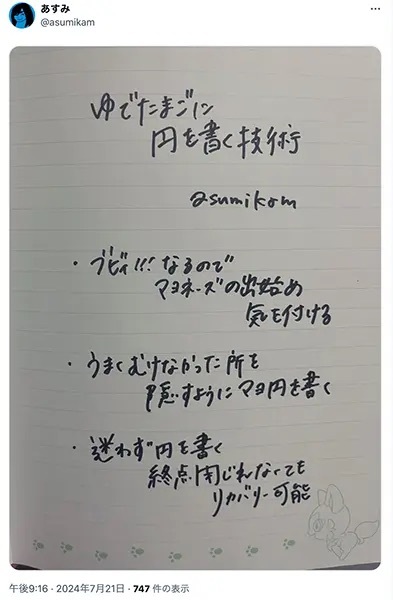 あすみ
@asumikam
ゆでたまごに
円を書く技術
asumikam
・ブビィ!!! なるので
マヨネーズの出始め
気を付ける
・うまくむけなかった所を
隠すようにマヨ円を書く
・迷わず円を書く
終点閉じれなくても
リカバリー可能
午後9:16 · 2024年7月21日 · 747 件の表示